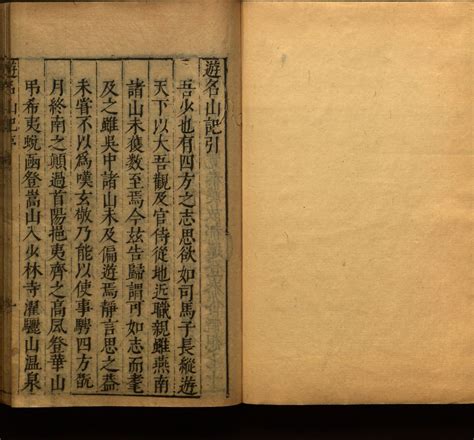 遊名山記引
吾少也有四方之志思欲如司馬子長縱遊
天下以大吾觀及官侍從地近職親雖燕南
諸山未獲數至焉今玆告歸謂可如志而耄
及之雖吳中諸山未及徧遊焉靜言思之葢
未甞不以爲嘆玄敬乃能以使事騁四方翫
月終南之顚過首陽挹夷齊之高風登華山
弔希夷蛻函登嵩山入少林寺濯驪山溫泉
遊名山記序